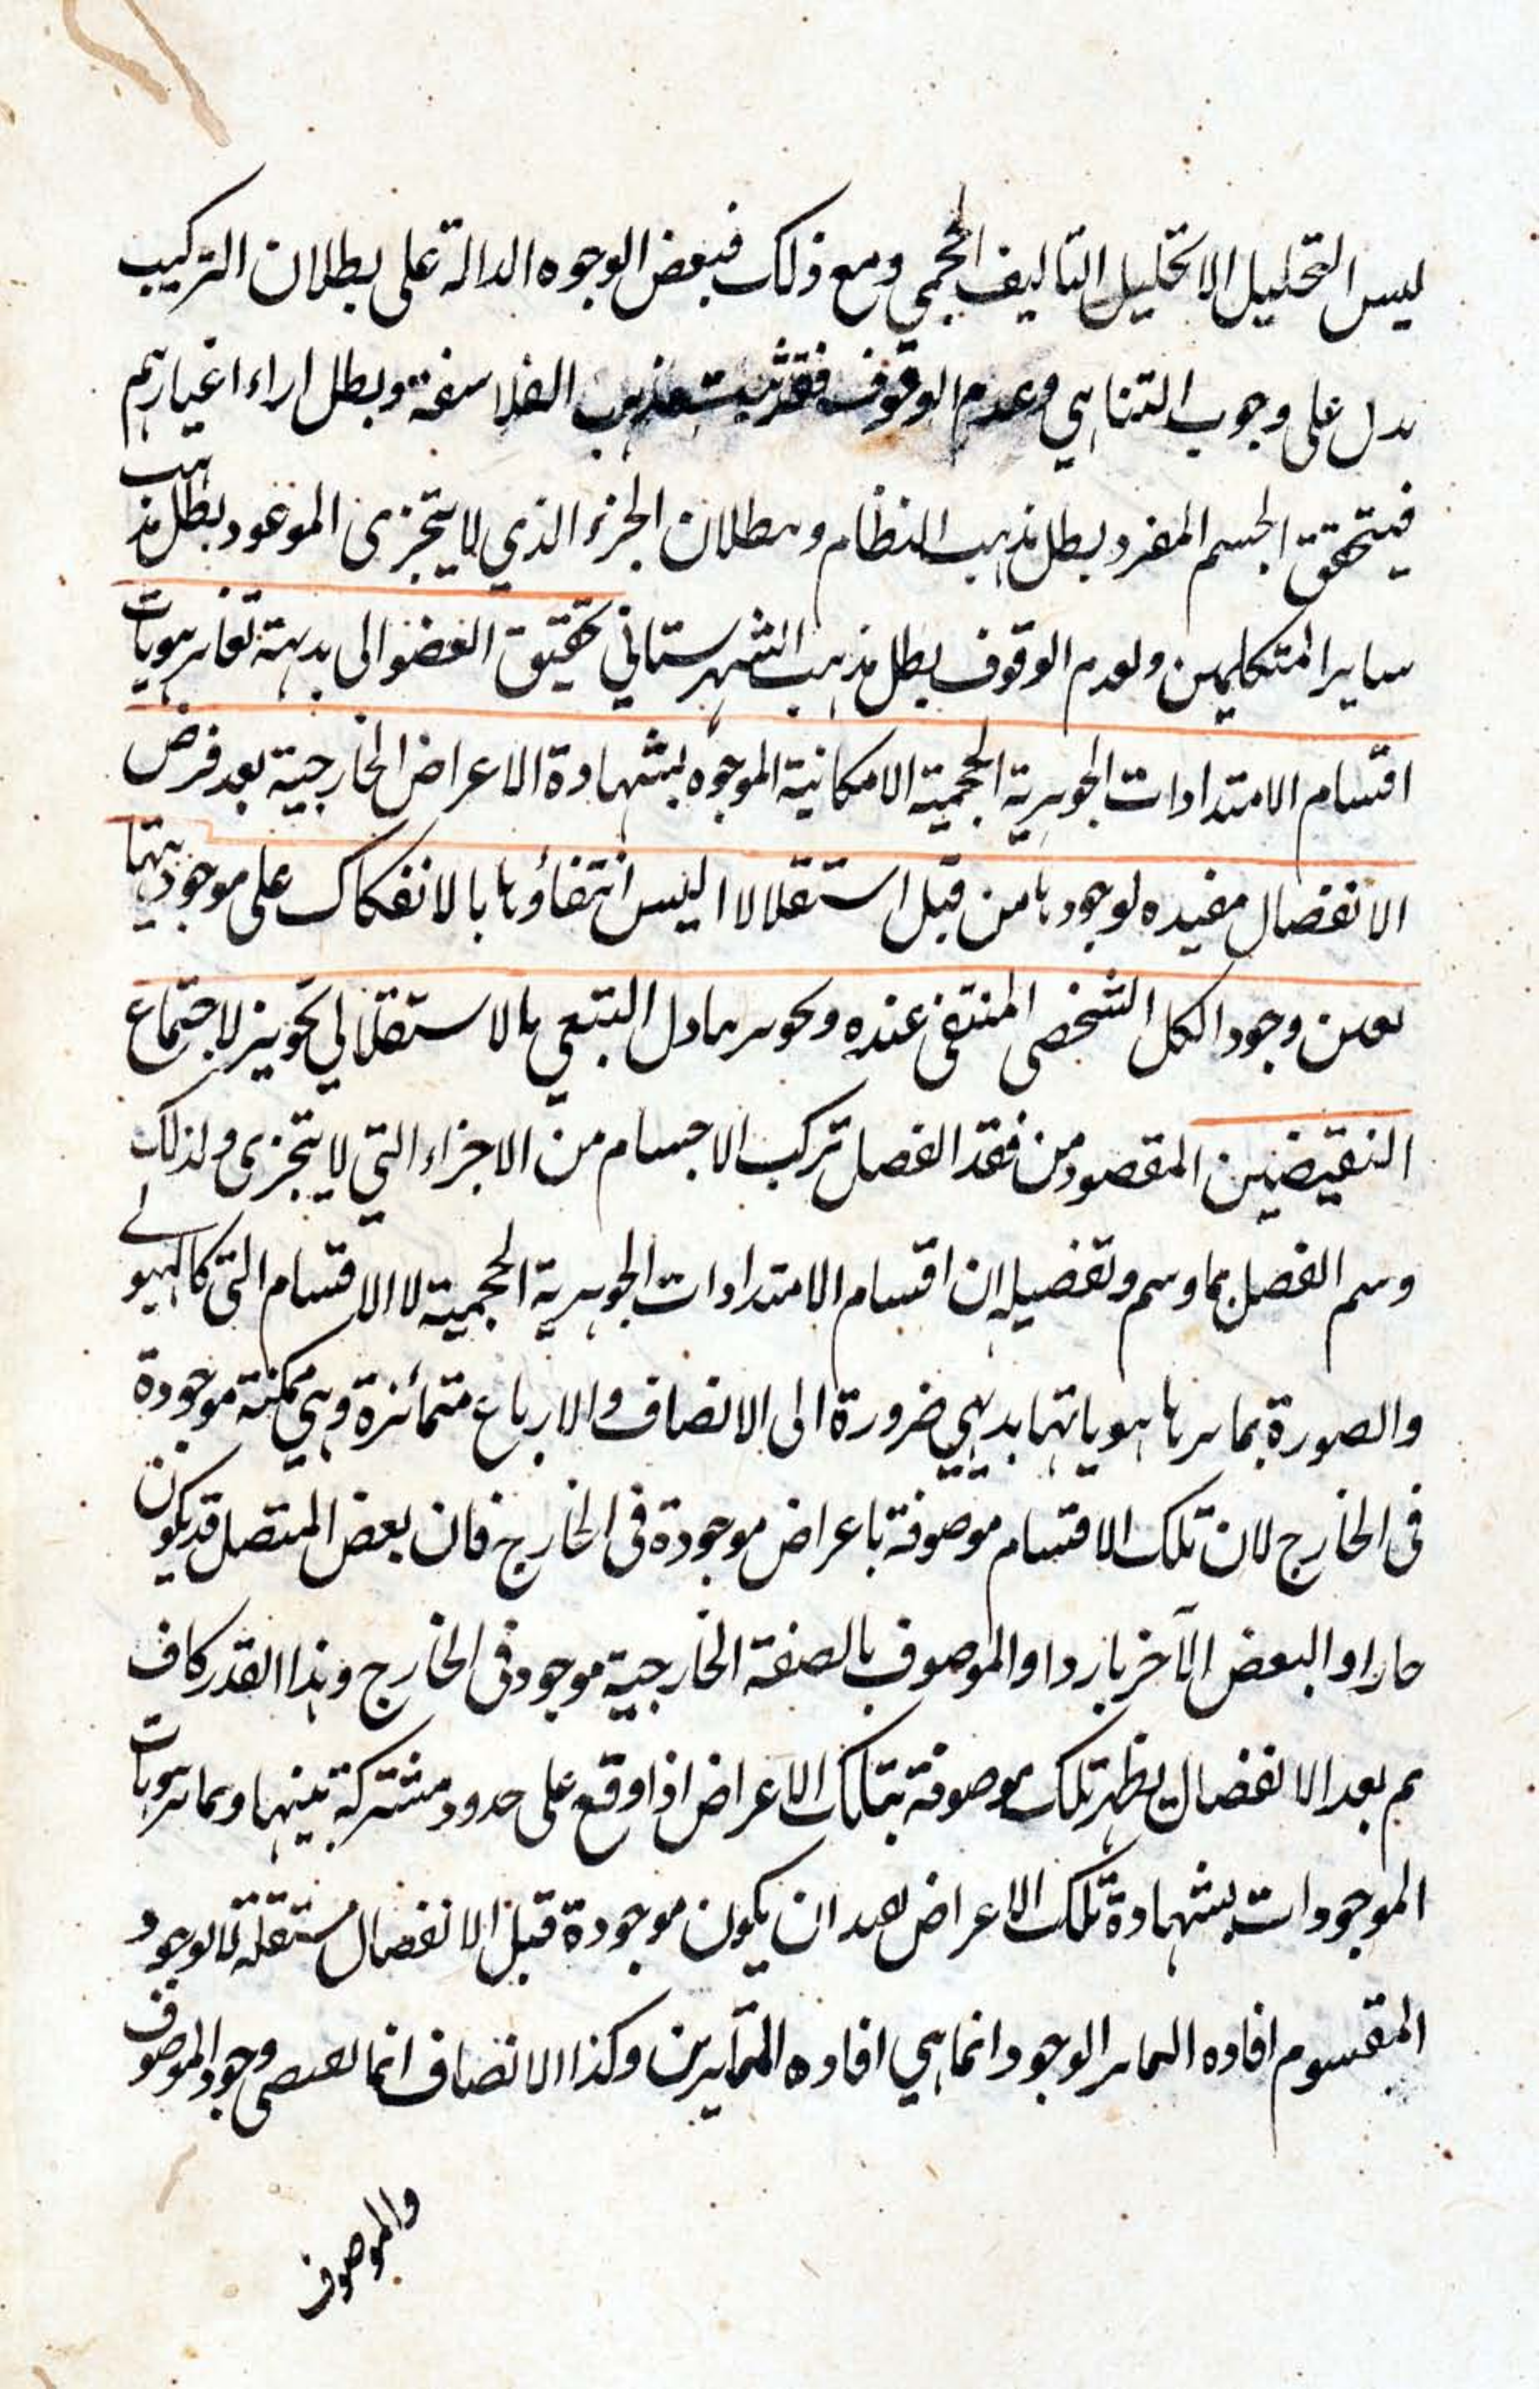 ليس التحليل الا تحليل التاليف الحجمي ومع ذلك فبعض الوجوه الدالة على بطلان التركيب
يدل على وجوب التناهي وعدم الوقوف فقد ثبت مذهب الفلاسفة وبطل اراء اغيارهم
فبتحقق الجسم المفرد بطل مذهب النظام وببطلان الجزء الذي لا يتجزى الموعود بطل مذهب
ساير المتكلمين ولعدم الوقوف بطل مذهب الشهرستاني تحقيق الغضوا الى بديهة تغاير هويات
اقسام الامتدادات الجوهرية الحجمية الامكانية الموجوه بشهادة الاعراض الخارجية بعد فرض
الانفصال مفيده لوجودها من قبل استقلالا اليس انتفاؤها بالانفكاك على موجوديتها
بعين وجود الكل الشخصي المنتفى عنده وتجويز تبادل التبعي بالاستقلالي تجويز لاجتماع
النقيضين المقصود من فقد الفصل تركب الاجسام من الاجزاء التي لا يتجزى ولذلك
وسم الفصل بما وسم وتفصيله ان اقسام الامتدادات الجوهرية الحجمية لا الاقسام التي كالهيولى
والصورة تمايزها هوياتها بديهي ضرورة الى الانصاف والارباع متمائزة وهي ممكنة موجودة
فى الخارج لان تلك الاقسام موصوفة باعراض موجودة فى الخارج فان بعض المتصل قد يكون
حارا والبعض الآخر باردا والموصوف بالصفة الخارجية موجود فى الخارج وهذا القدر كاف
ثم بعد الانفصال يظهر تلك موصوفة بتلك الاعراض اذا وقع على حدود مشتركة بينهما وتمايز هويات
الموجودات بشهادة تلك الاعراض يفيد ان يكون موجودة قبل الانفصال مستقلة لا بوجود
المقسوم افاده التمايز الوجود انما هي افاده المتمايزين وكذا الاتصاف انما يقتضي وجود الموصوف
والموصوف